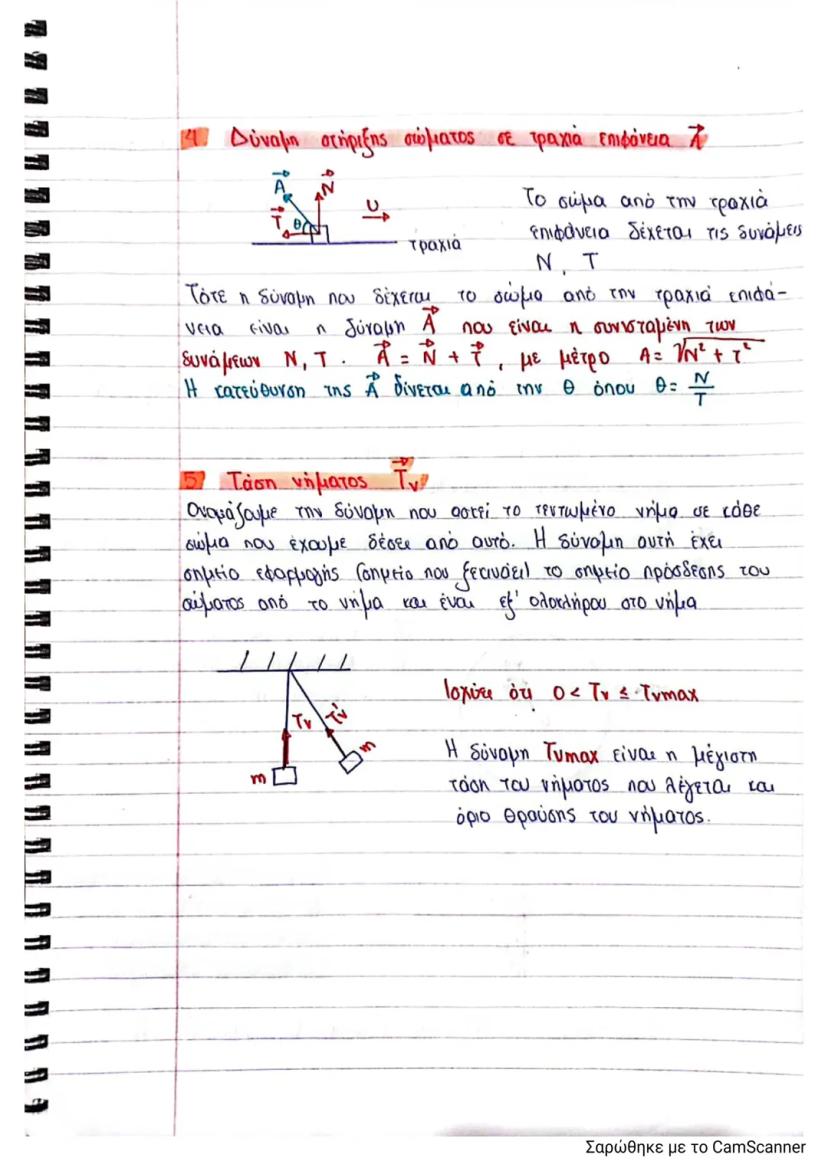 4 Δύναμη στήριξης σώματος σε τραχιά επιφάνεια A
A N
T θ
υ
τραχιά
Το σώμα από την τραχιά
επιφάνεια δέχεται τις δυνάμεις
N, T
Τότε η δύναμη που δέχεται το σώμα από την τραχιά επιφά-
νεια είναι η δύναμη A που είναι η συνισταμένη των
δυνάμεων N, T. A = N + T, με μέτρο A = √N² + T²
Η κατεύθυνση της A δίνεται από την θ όπου θ = N/T
5 Τάση νήματος Tν
Ονομάζουμε την δύναμη που ασκεί το τεντωμένο νήμα σε κάθε
σώμα που έχουμε δέσει από αυτό. Η δύναμη αυτή έχει
σημείο εφαρμογής (σημείο που ξεκινάει) το σημείο πρόσδεσης του
σώματος από το νήμα και είναι εξ' ολοκλήρου στο νήμα
Tν Tν'
m m
Ισχύει ότι 0 < Tν ≤ Tνmax
Η δύναμη Tνmax είναι η μέγιστη
τάση του νήματος που λέγεται και
όριο θραύσης του νήματος.
Σαρώθηκε με το CamScanner